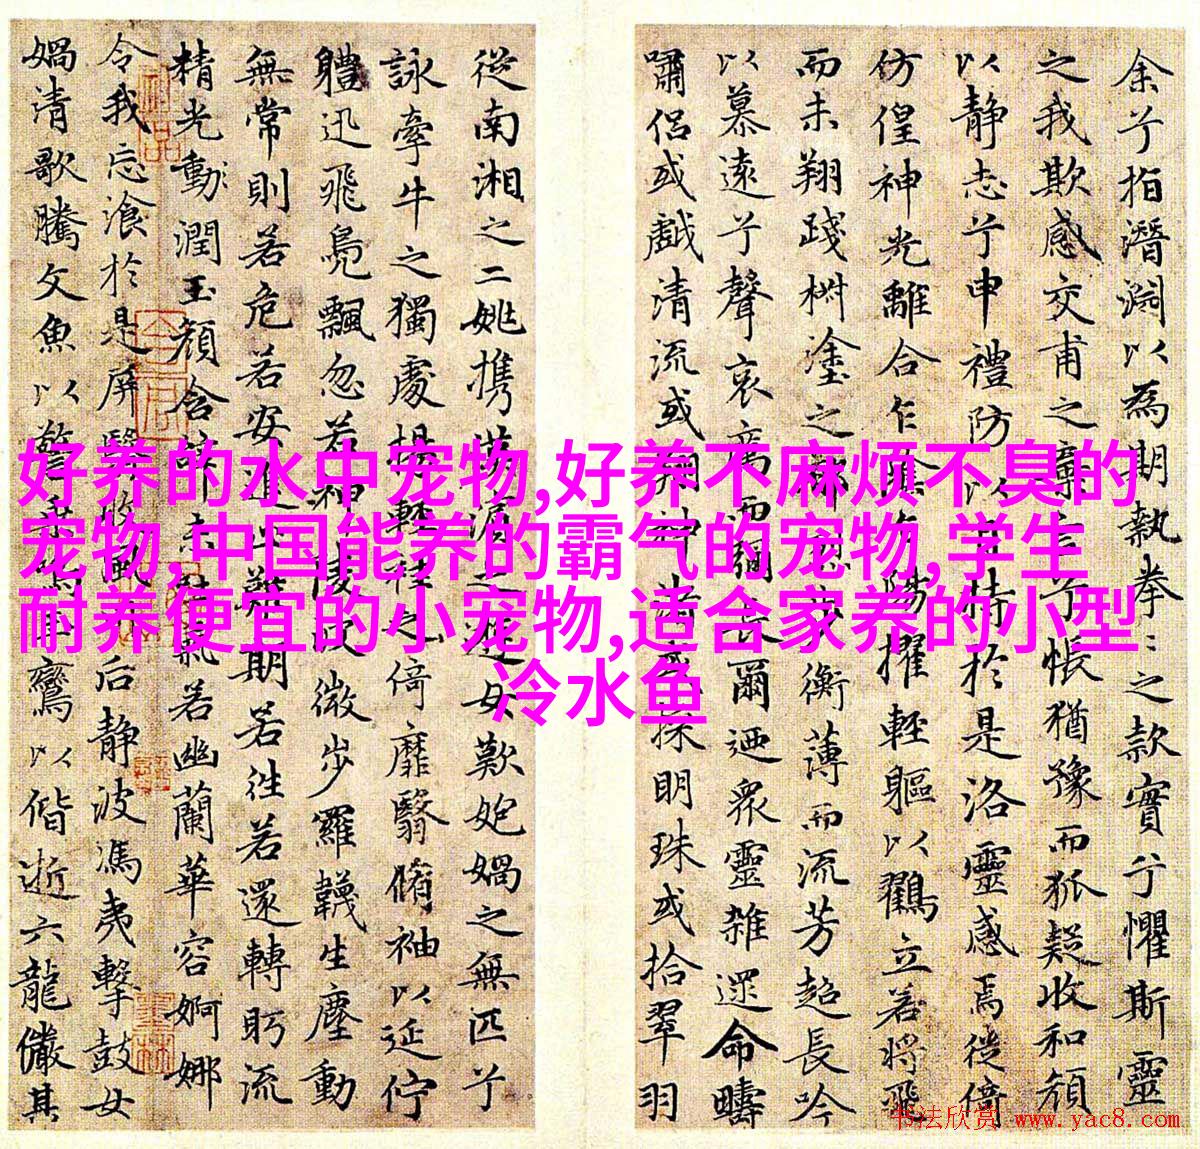 好养的水中宠物,好养不麻烦不臭的
宠物,中国能养的霸气的宠物,学生
耐养便宜的小宠物,适合家养的小型
冷水鱼
余兮指潛淵以為期執拳〻之款實兮懼斯靈
之我欺感交甫之棄言兮悵猶豫而狐疑收和顏
以静志兮申禮防以自持於是洛靈感焉徙倚
仿偟神光離合乍陰乍陽擢輕軀以鶴立若將飛
而未翔踐椒塗之郁烈步衡薄而流芳超長吟
以慕遠兮聲哀厲而彌長爾迺眾靈雜遝命疇
嘯侶或戲清流或翔神渚或採明珠或拾翠羽
從南湘之二姚攜漢濱之遊女歎匏媧之無匹兮
詠牽牛之獨處揚輕袿之倚靡翳脩袖以延佇
體迅飛鳧飄忽若神陵波微步羅韈生塵動
無常則若危若安進止難期若往若還轉眄流
精光動潤玉顏含辭未吐氣若幽蘭華容婀娜
令我忘飡於是屏翳收風川后静波馮夷擊鼓女
媧清歌騰文魚以警乘鳴玉鸞以偕逝六龍儼其
书法欣赏 www.yac8.com